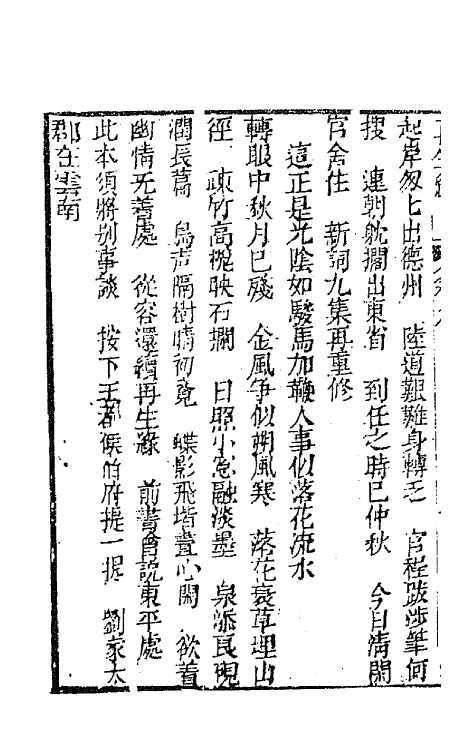 起岸匆匕出德州　陸道艱難身轉乏　官程跋渉筆何
搜　連朝躭擱出東省　到任之時已仲秋　今日清閑
官舍住　新詞九集再重修
這正是光陰如駿馬加鞭人事似落花流水
轉眼中秋月已殘　金風爭似朔風寒　落花衰草埋山
徑　疎竹高槐映石擱　日照小窓融淡墨　泉添良硯
潤長蒿　鳥声隔樹晴初覺　蝶影飛堦晝心閑　欲着
幽情无着處　從容還續再生緣　前書曾説東平處
此本須將别事談　按下王都侯伯府提一提　劉家大
郡在雲南